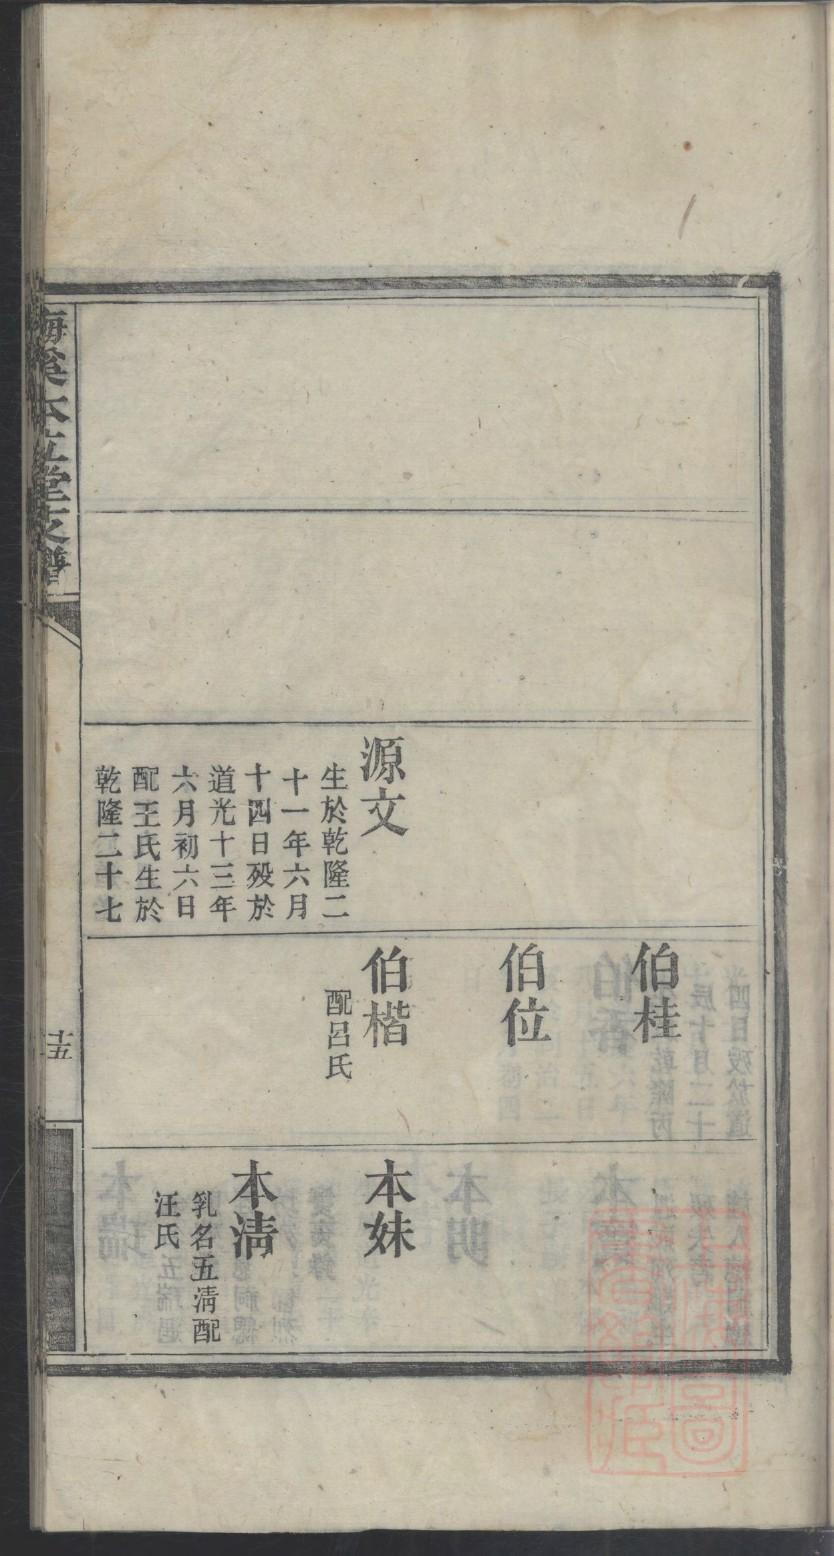 源文
生於乾隆二
十一年六月
十四日歿於
道光十三年
六月初六日
配王氏生於
乾隆二十七
伯桂
伯位
伯楷
配呂氏
本妹
本淸
乳名五淸配
汪氏
梅溪本立堂支譜
十五